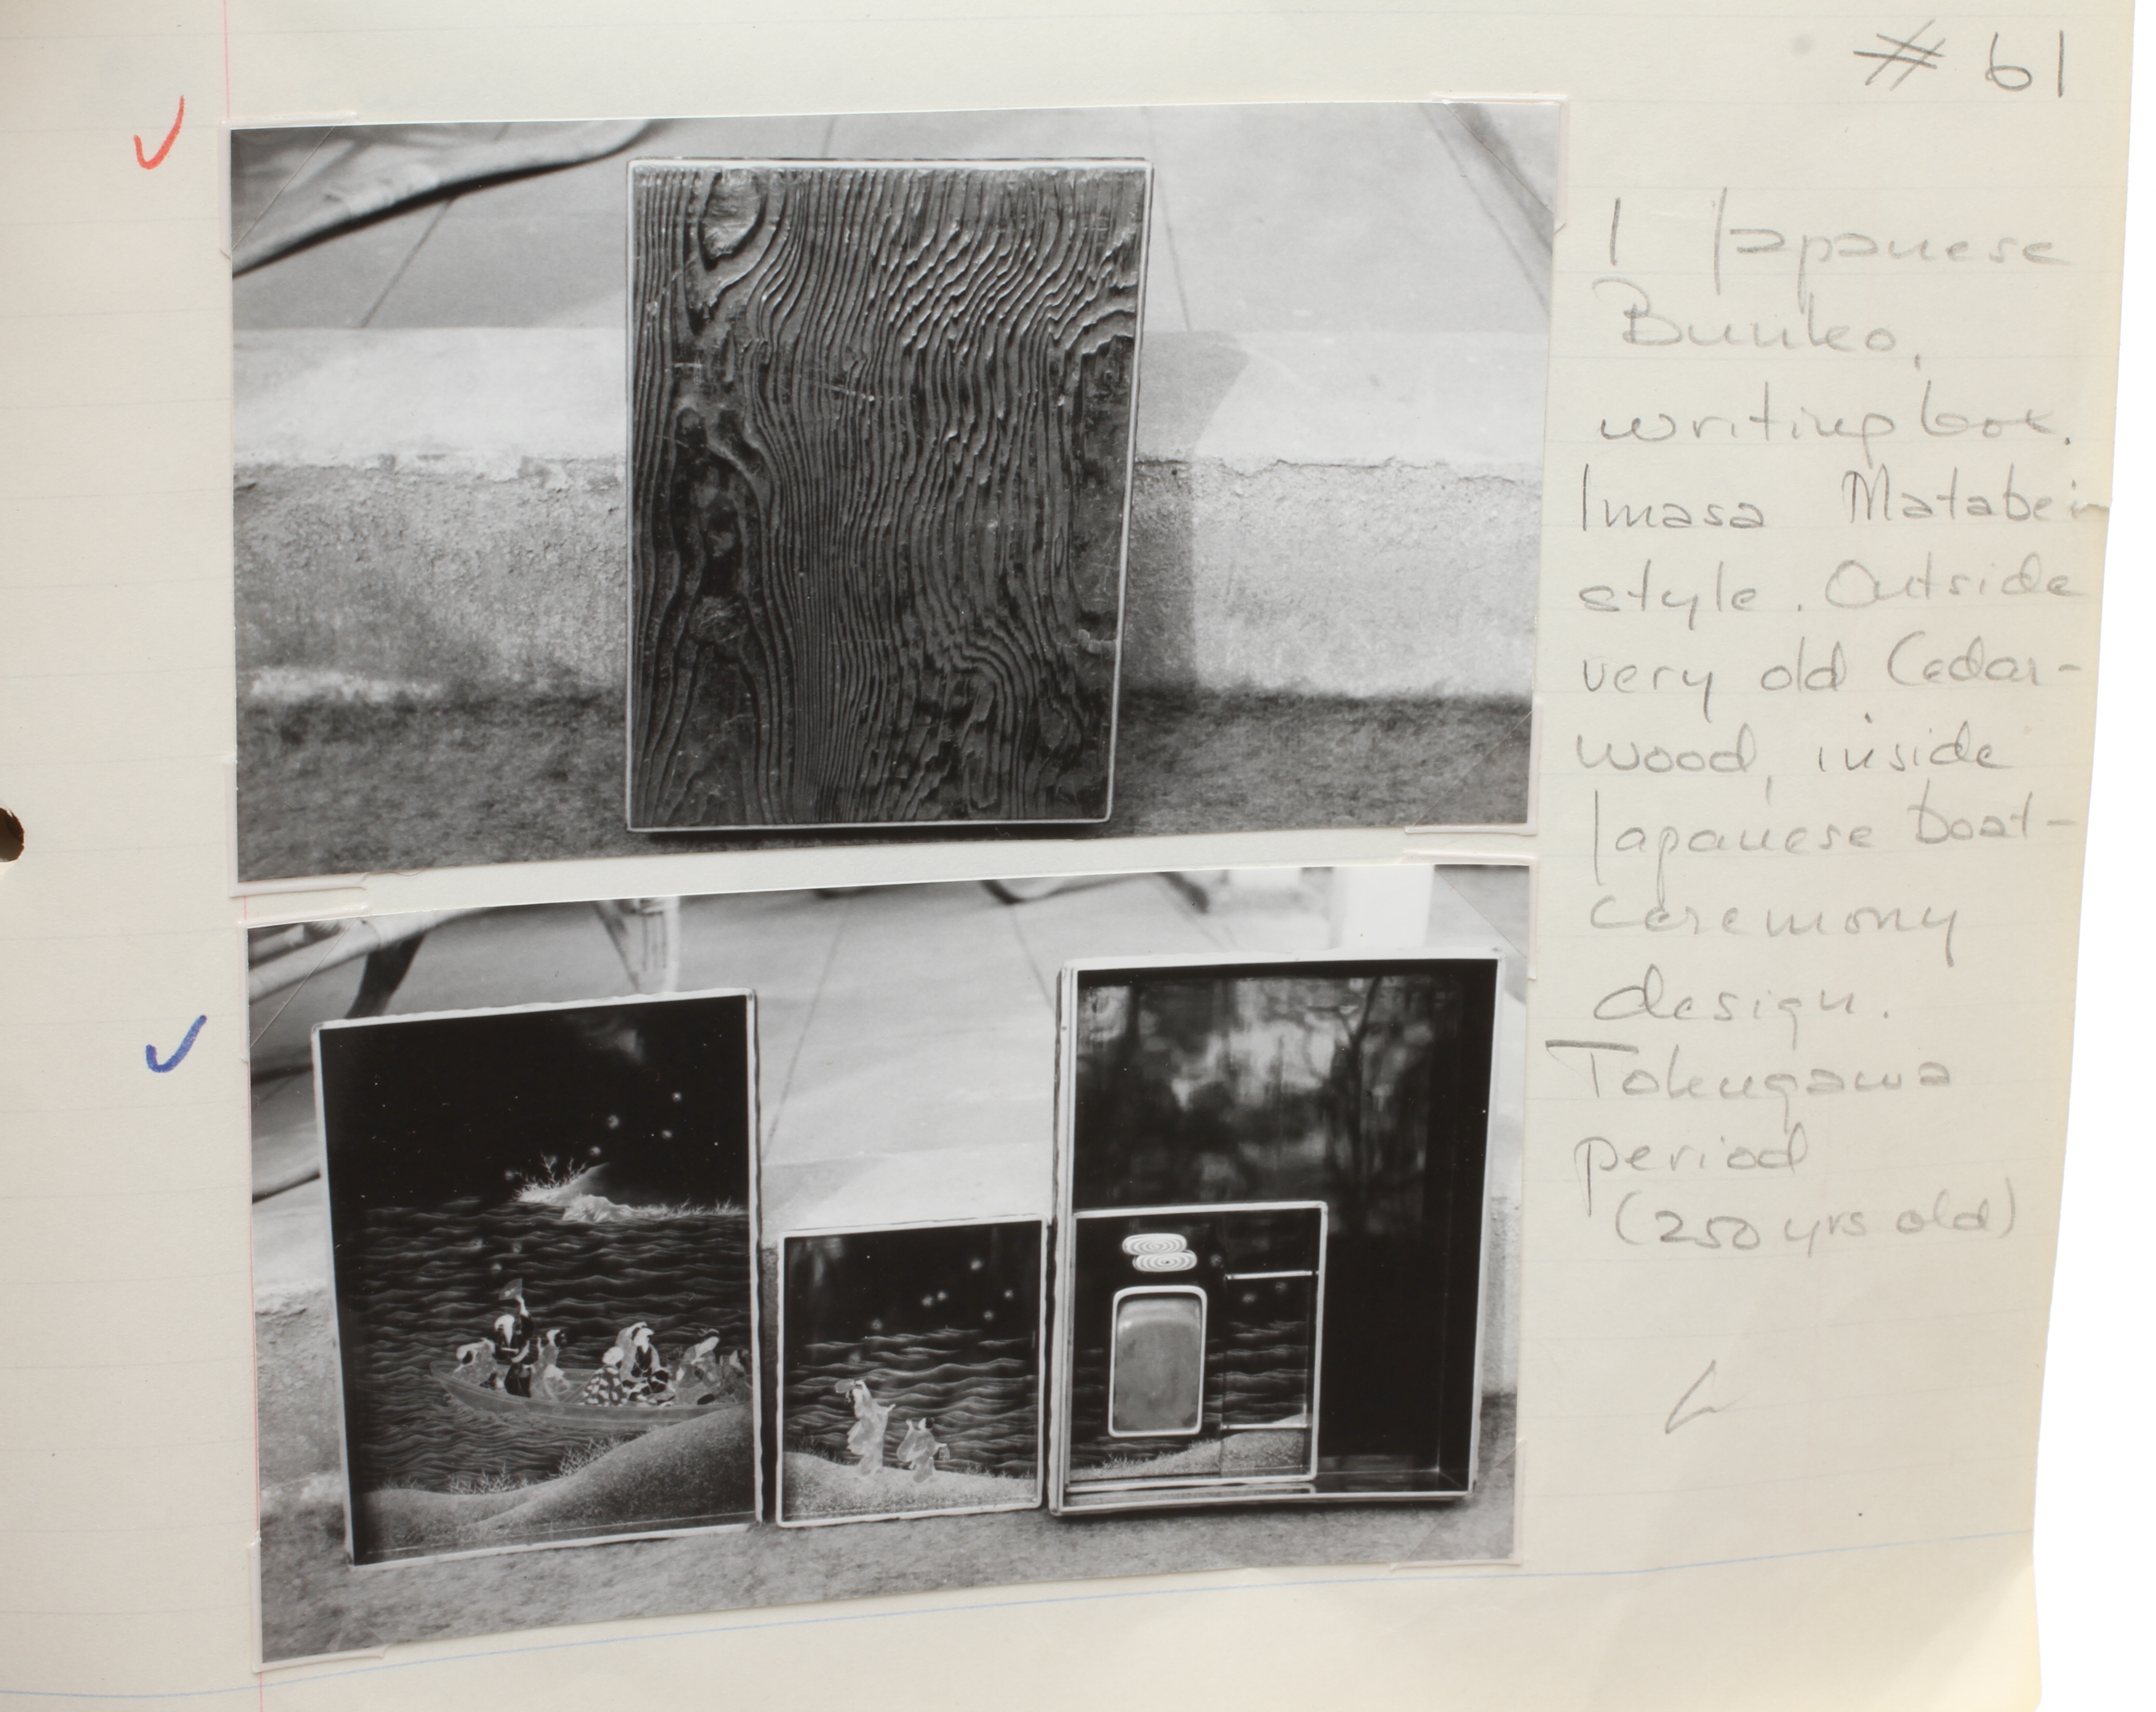 # 61
1 Japanese
Bunko,
writing box.
Imasa Matabei
style. Outside
very old Cedar-
wood, inside
Japanese boat-
ceremony
design.
Tokugawa
period
(250 yrs old)